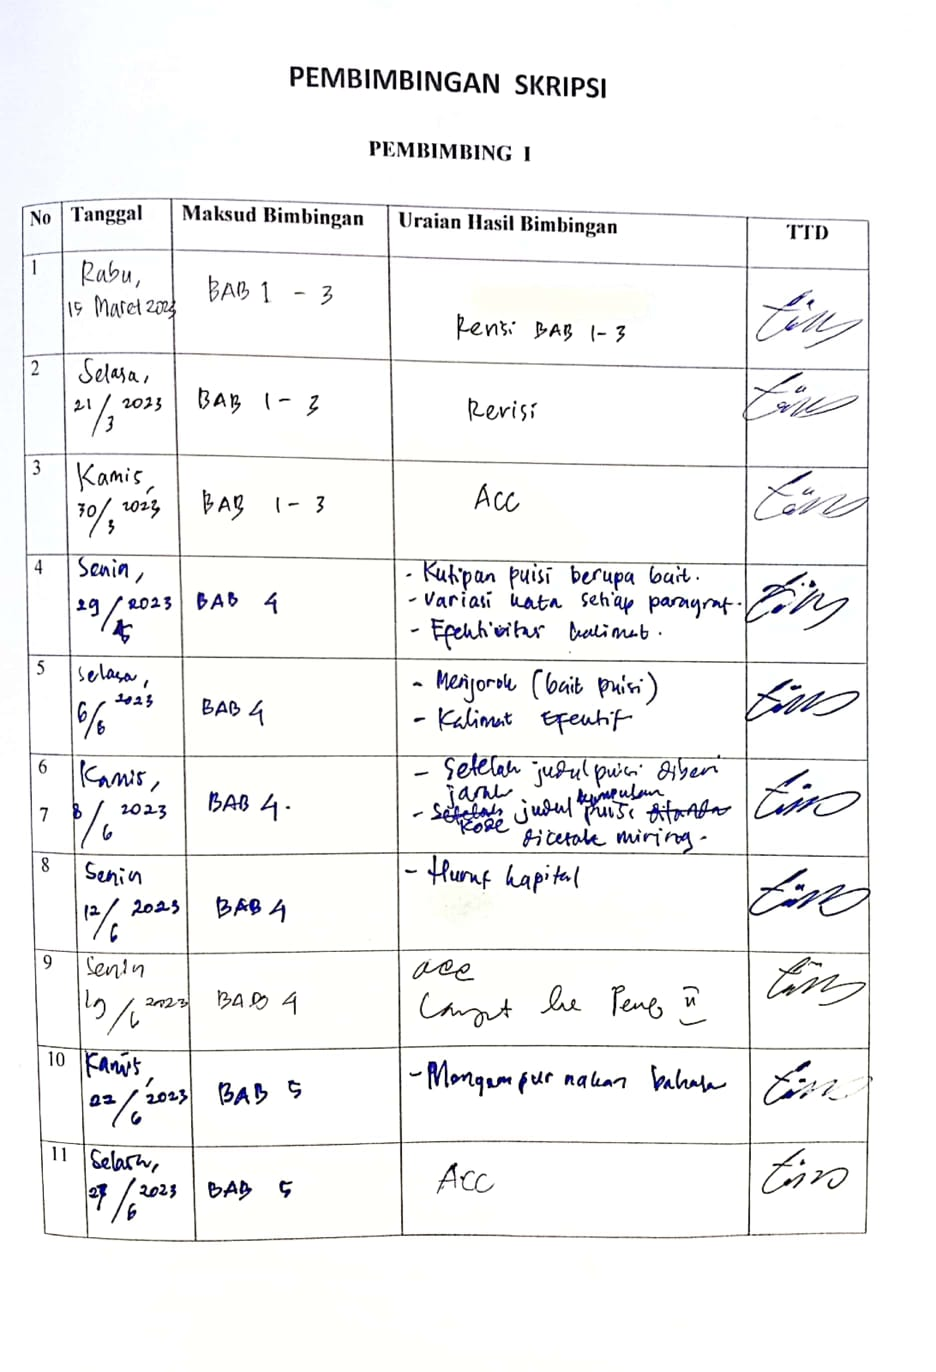 PEMBIMBINGAN SKRIPSI
PEMBIMBING I
No Tanggal Maksud Bimbingan Uraian Hasil Bimbingan TTD
1 Rabu, 15 Maret 2023 BAB 1 - 3 Revisi BAB 1-3
2 Selasa, 21/3 2023 BAB 1 - 3 Revisi
3 Kamis, 30/3 2023 BAB 1 - 3 Acc
4 Senin, 29/5 2023 BAB 4 - Kutipan puisi berupa bait.
- Variasi kata setiap paragraf.
- Efektivitas kalimat.
5 Selasa, 6/6 2023 BAB 4 - Menjorok (bait puisi)
- Kalimat Efektif
6 Kamis, - Setelah judul puisi diberi
7 8/6 2023 BAB 4. jarak
- Setelah judul kumpulan puisi ditandai
kode dicetak miring.
8 Senin 12/6 2023 BAB 4 - Huruf kapital
9 Senin 19/6 2023 BAB 4 acc
Lanjut ke Pemb II
10 Kamis, 22/6 2023 BAB 5 - Mengampurnakan bahasa
11 Selasa, 27/6 2023 BAB 5 Acc